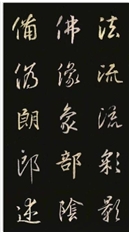 法流流彩影
佛缘象部陰
備朗郎述